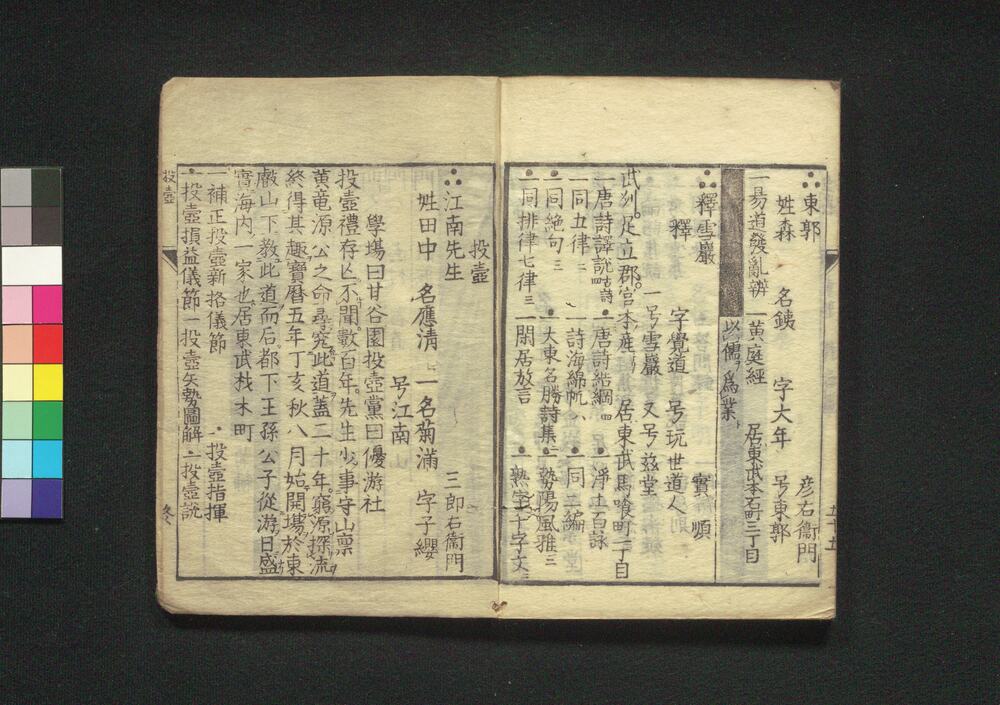 東郭 彦右衞門
姓森 名銕 字大年 号東郭
一昜道發亂辨 一黄庭經 居東武本石町三丁目
以儒ヲ為業
釋雪巖 實順
釋 字覺道 号玩世道人
一号雪巖 又号兹堂
武刕足立郡宮本産 居東武馬喰町二丁目
一唐詩譯説 古詩 四 一唐詩結綱 四 一淨土百詠
一同五律 二 一詩海綿帆 八 一同二編
一同絶句 三 一大東名勝詩集 二 一勢陽風雅 三
一同排律七律 三 一閑居放言 一熟字千字文 三
五十五
投壺
江南先生 三郎右衞門
姓田中 名應清 一名菊滿 字子纓
号江南
學塲曰甘谷園投壺黨曰優游社
投壺禮存亡不聞數百年先生少事守山禀
黄竜源公之命尋究此道蓋二十年窮源探流
終得其趣寶暦五年丁亥秋八月始開塲於東
敵山下教此道而后都下王孫公子從游日盛
實海内一家也居東武材木町
一補正投壺新格儀節 一投壺指揮
一投壺損益儀節 一投壺矢勢圖解 一投壺説
投壺
冬